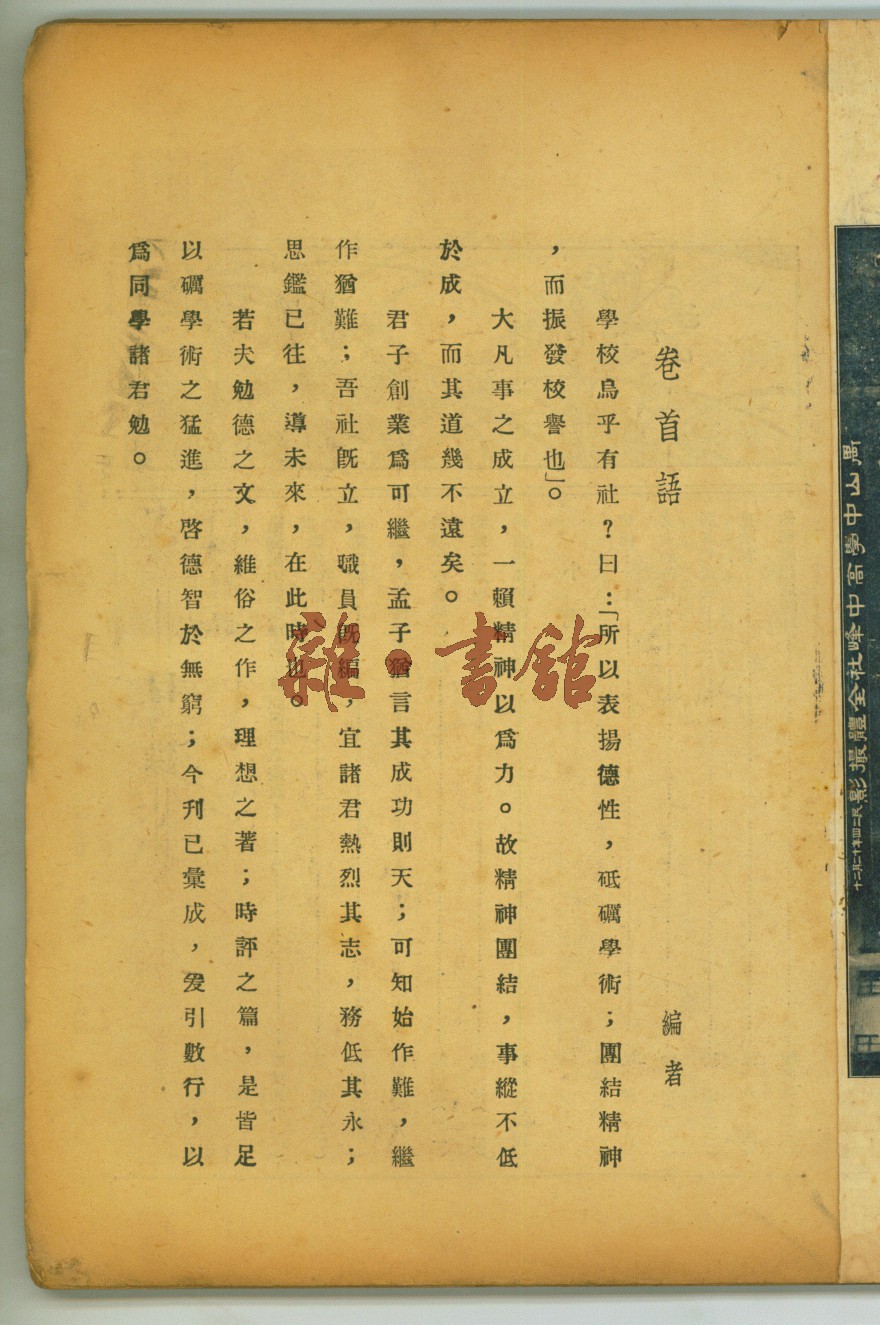 卷首語
編者
學校烏乎有社？曰：「所以表揚德性，砥礪學術；團結精神
，而振發校譽也」。
大凡事之成立，一賴精神以爲力。故精神團結，事縱不低
於成，而其道幾不遠矣。
君子創業爲可繼，孟子猶言其成功則天；可知始作難，繼
作猶難；吾社旣立，職員旣編，宜諸君熱烈其志，務低其永；
思鑑已往，導未來，在此時也。
若夫勉德之文，維俗之作，理想之著；時評之篇，是皆足
以礪學術之猛進，啓德智於無窮；今刋已彙成，爰引數行，以
爲同學諸君勉。
雜·書館
中山中學高中峰社全體撮影